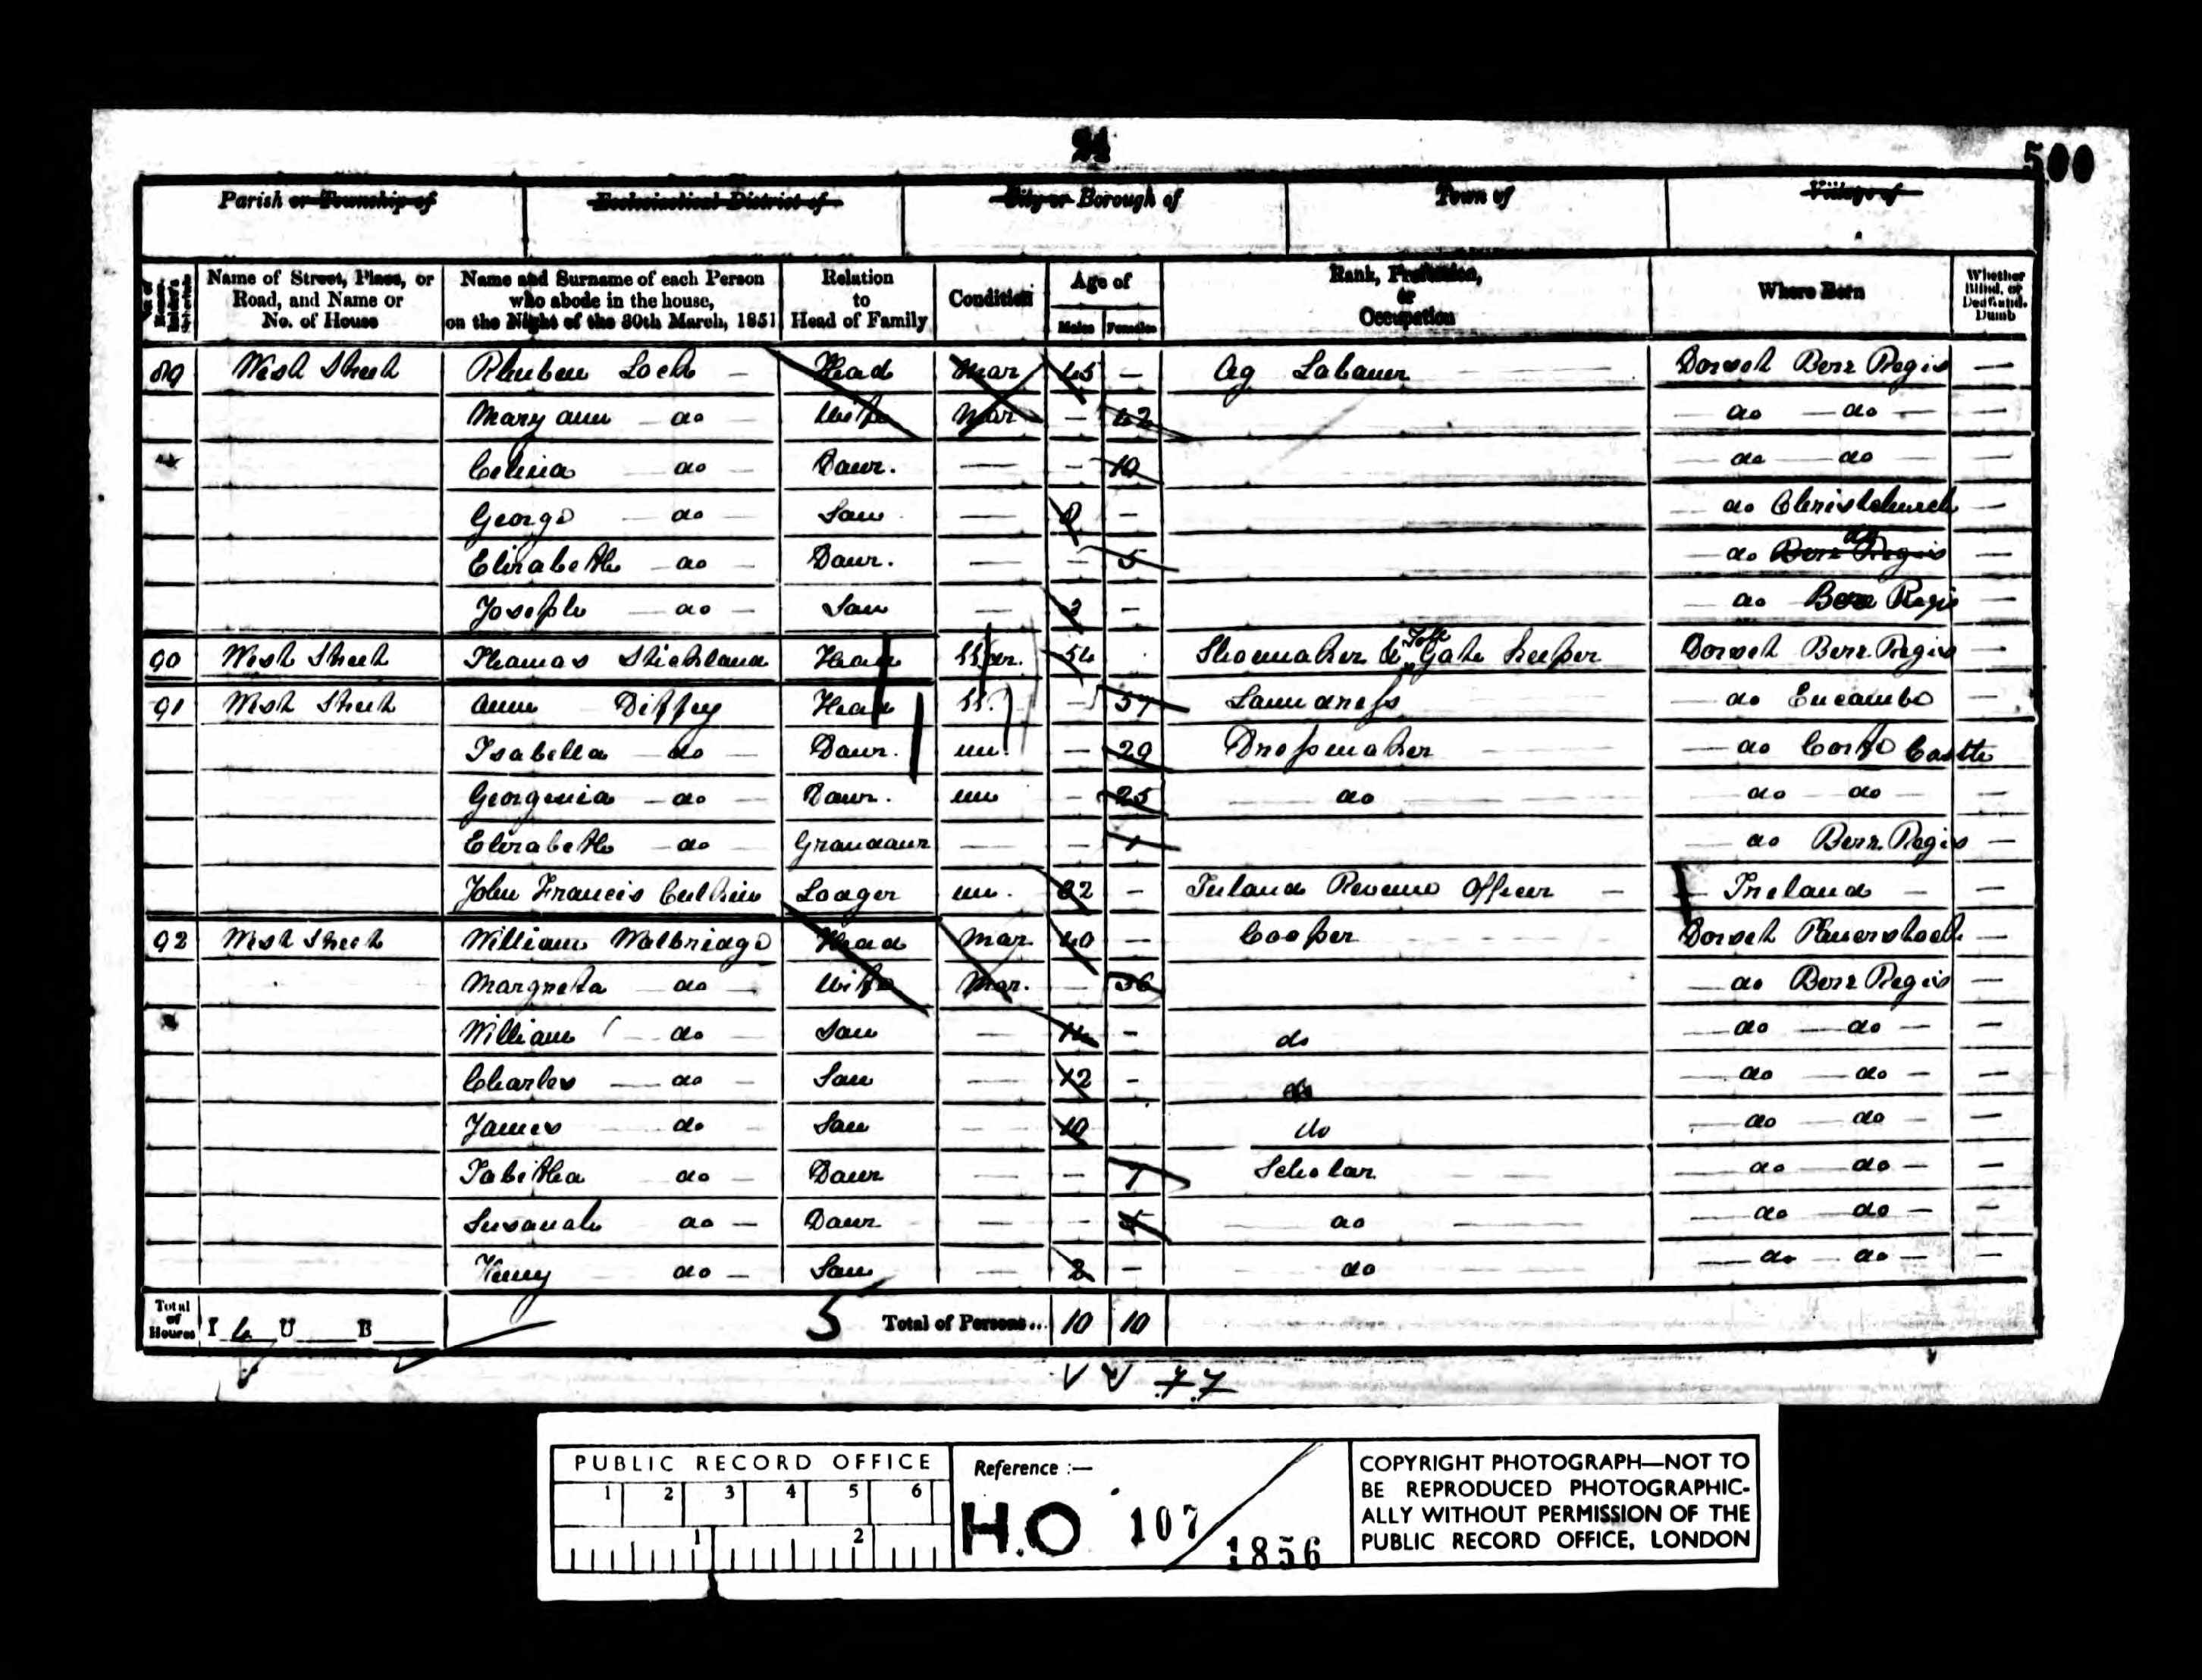 24
500
Parish or Township of Ecclesiastical District of City or Borough of Town of Village of
No. of House-holder's Schedule
Name of Street, Place, or Road, and Name or No. of House
Name and Surname of each Person who abode in the house, on the Night of the 30th March, 1851
Relation to Head of Family
Condition
Age of
Males Females
Rank, Profession, or Occupation
Where Born
Whether Blind, or Deaf-and-Dumb
89 West Street Rheuben Lock — Head Mar 45 — Ag Labourer Dorset Bere Regis —
Mary ann do Wife Mar — 42 do do —
Celina do Daur. — — 10 do do —
George do Son — 8 — do Christchurch —
Elizabeth do Daur. — — 5 do Bere Regis do —
Joseph do Son — — do Bere Regis —
90 West Street Thomas Stickland Head 54 Shoemaker & Toll Gate Keeper Dorset Bere Regis —
91 West Street Ann Diffey Head — 57 Laundress do Encombe —
Isabella do Daur. un. — 29 Dressmaker — do Corfe Castle
Georgenia do Daur. un — 25 do do do —
Elizabeth do Grandaur — — 1 do Bere Regis —
John Francis Lodger un. — Inland Revenue Officer — Ireland —
92 West Street William Walbridge Head Mar 40 — Cooper Dorset —
Margreta do Wife Mar. — 36 do Bere Regis —
William do Son — 14 — do do do —
Charles do Son — 12 — do do do —
James do Son — 10 do do do —
Tabitha do Daur — — 7 Scholar do do —
Susanah do Daur — — 5 do do do —
Henry do Son — 2 — do do do —
Total of Houses I 4 U B 5 Total of Persons.. 10 10
77
PUBLIC RECORD OFFICE
1 2 3 4 5 6
1 2
Reference :—
H.O 107/1856
COPYRIGHT PHOTOGRAPH—NOT TO
BE REPRODUCED PHOTOGRAPHIC-
ALLY WITHOUT PERMISSION OF THE
PUBLIC RECORD OFFICE, LONDON